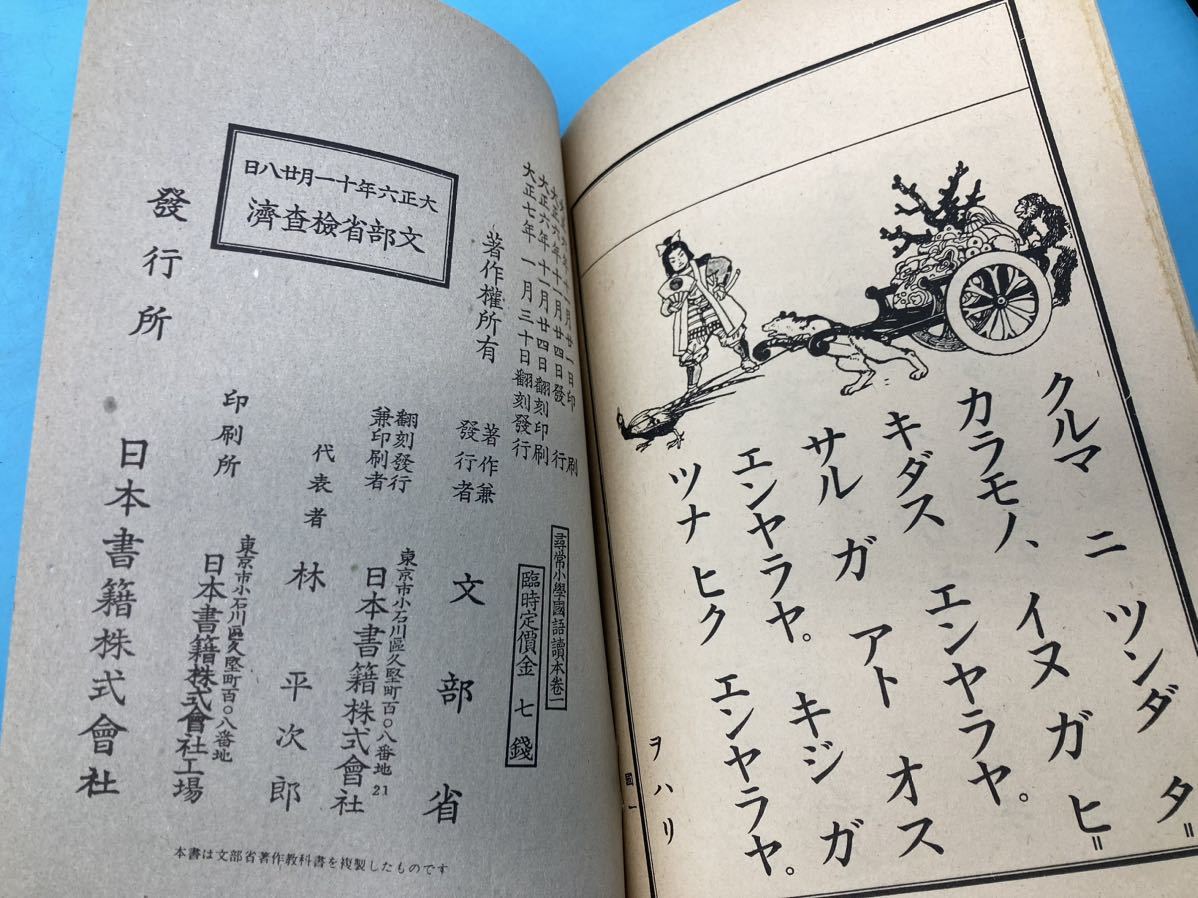 クルマ ニ ツンダ タ=
カラモノ、イヌ ガ ヒ=
キダス エンヤラヤ。
サル ガ アト オス
エンヤラヤ。 キジ ガ
ツナ ヒク エンヤラヤ。
ヲハリ
國一
大正六年十一月廿一日印刷
大正六年十一月廿四日發行
大正六年十一月廿四日翻刻印刷
大正七年一月三十日翻刻發行
尋常小學國語讀本卷一
臨時定價金七錢
著作權所有
著作兼
發行者
文部省
翻刻發行
兼印刷者
東京市小石川區久堅町百〇八番地
日本書籍株式會社
21
代表者 林平次郎
印刷所
東京市小石川區久堅町百〇八番地
日本書籍株式會社工場
大正六年十一月廿八日
文部省檢査濟
發行所 日本書籍株式會社
本書は文部省著作教科書を複製したものです